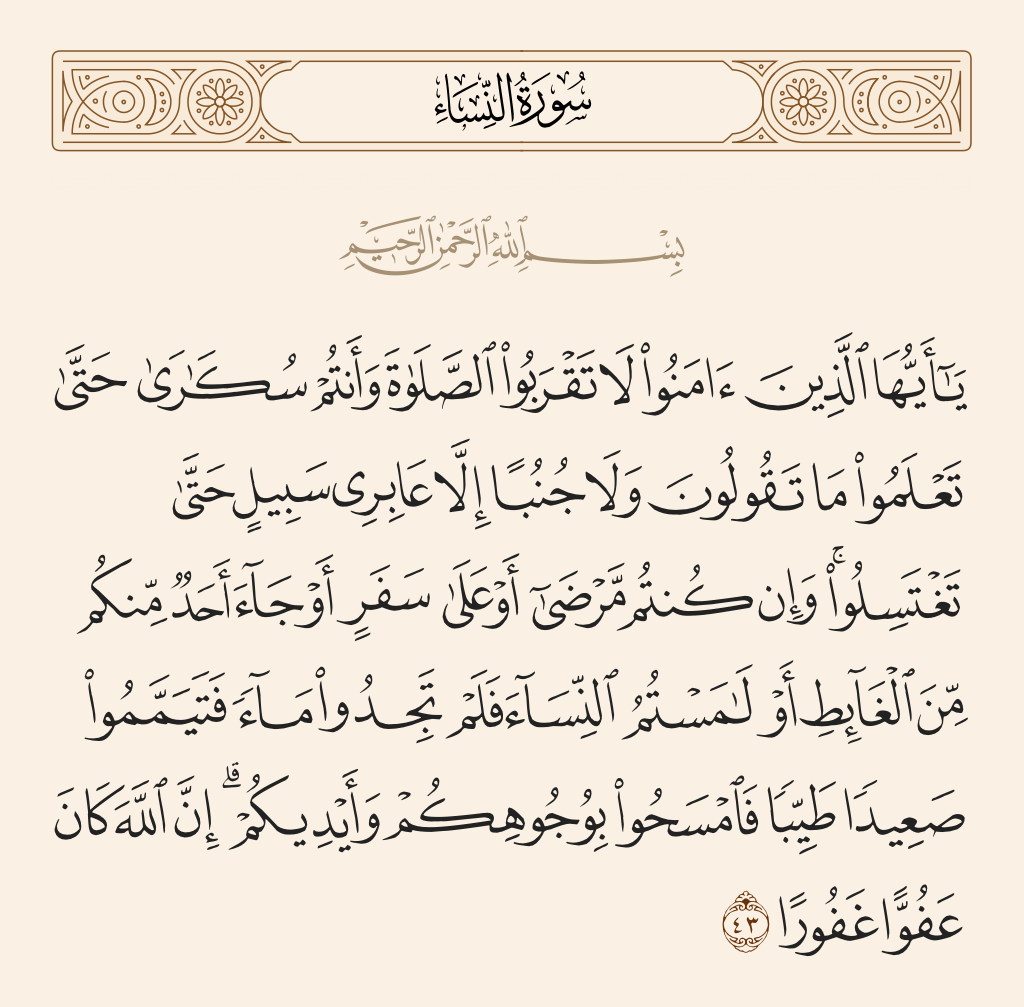 سُورَةُ النِّسَاءِ
بِسْمِ ٱللَّهِ ٱلرَّحْمَٰنِ ٱلرَّحِيمِ
يَٰٓأَيُّهَا ٱلَّذِينَ ءَامَنُوا۟ لَا تَقْرَبُوا۟ ٱلصَّلَوٰةَ وَأَنتُمْ سُكَٰرَىٰ حَتَّىٰ
تَعْلَمُوا۟ مَا تَقُولُونَ وَلَا جُنُبًا إِلَّا عَابِرِى سَبِيلٍ حَتَّىٰ
تَغْتَسِلُوا۟ ۚ وَإِن كُنتُم مَّرْضَىٰٓ أَوْ عَلَىٰ سَفَرٍ أَوْ جَآءَ أَحَدٌ مِّنكُم
مِّنَ ٱلْغَآئِطِ أَوْ لَٰمَسْتُمُ ٱلنِّسَآءَ فَلَمْ تَجِدُوا۟ مَآءً فَتَيَمَّمُوا۟
صَعِيدًا طَيِّبًا فَٱمْسَحُوا۟ بِوُجُوهِكُمْ وَأَيْدِيكُمْ ۗ إِنَّ ٱللَّهَ كَانَ
عَفُوًّا غَفُورًا ٤٣